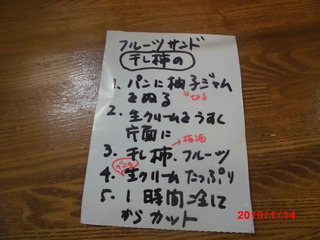 フルーツサンド
干し柿の
1. パンに柚子ジャム
をぬる
2. 生クリームをうすく
片面に
3. 干し柿、フルーツ
4. 生クリームたっぷり
5. 1時間
からカット
2019/1/14